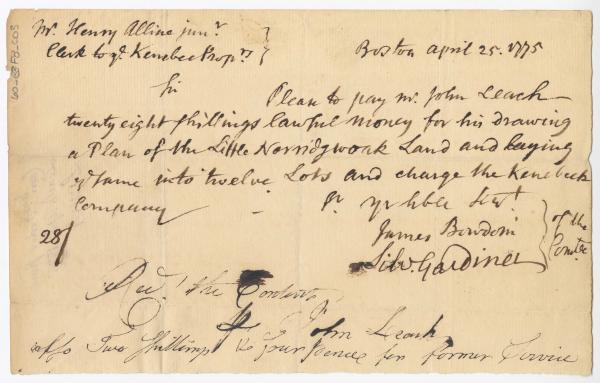 Mr. Henry Alline junr.
Clerk to ye. Kenebec Proprs
Boston April 25. 1775
Sir
Please to pay mr. John Leach
twenty eight shillings lawful money for his drawing
a Plan of the Little Norridgwoak Land and laying
ye same into twelve Lots and charge the Kenebeck
Company
pr yr hble Servt.
28/
James Bowdoin
Silv. Gardiner
of the
Comtee
Recd. the Contents
pr John Leach
also Two Shillings & Four pence for former Service